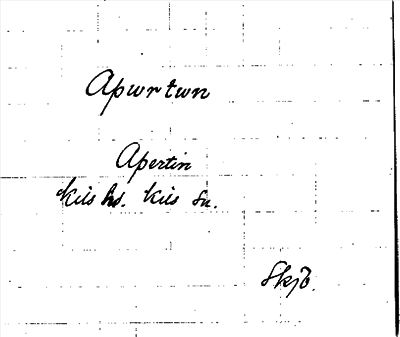 Apwrtwn
Apertin
Kils hd. Kils Su.